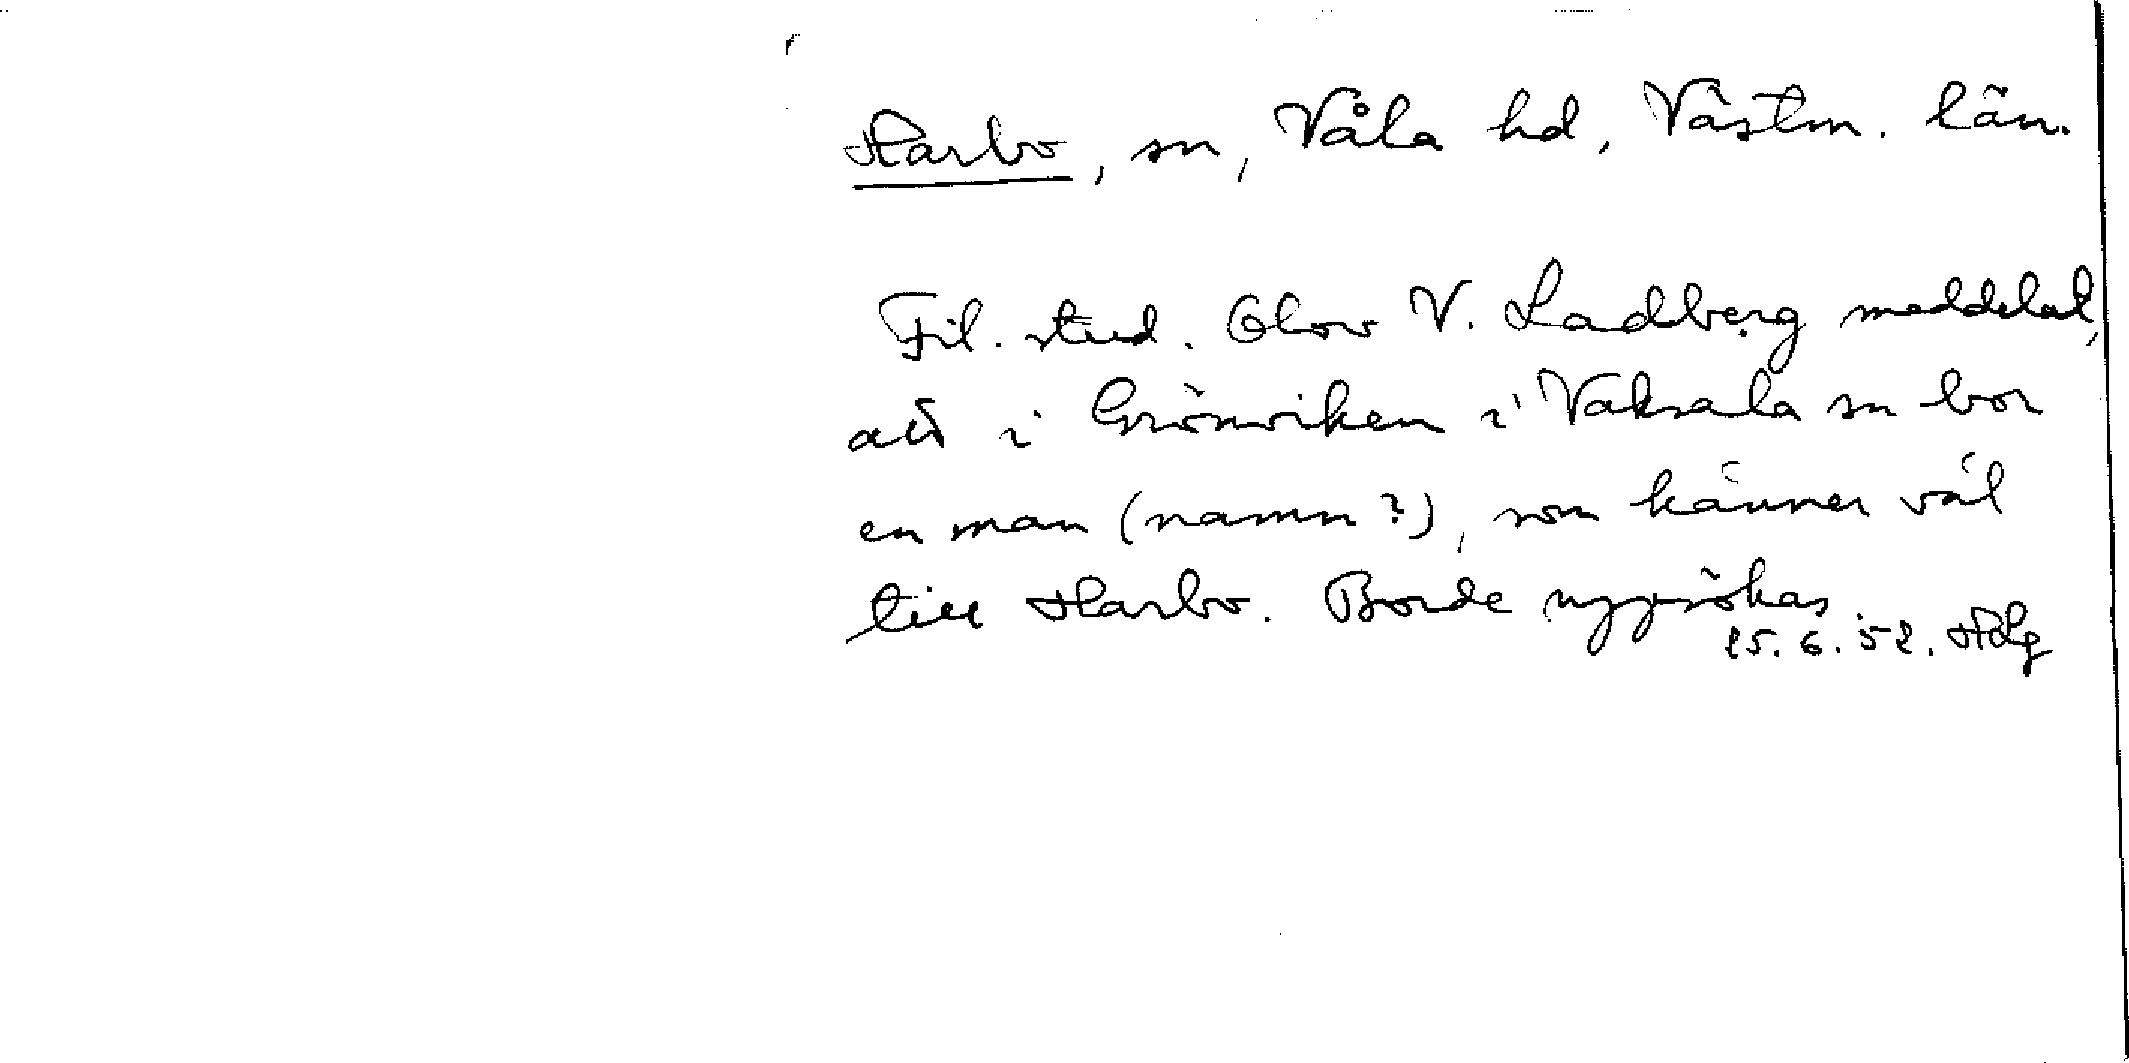 Harbo, sn, Våla hd, Västm. län.
Fil. stud. Olov V. Ladberg meddelat,
att i Grönviken i Vaksala sn bor
en man (namn?), som känner väl
till Harbo. Borde uppsökas.
25.6.52.